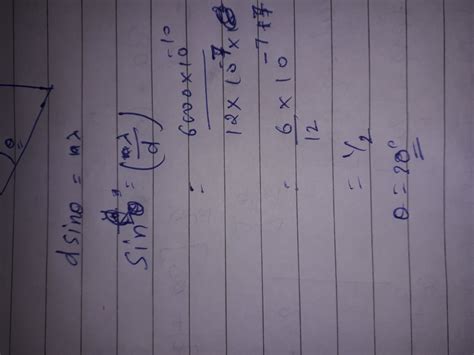 θ
d sinθ = nλ
sinθ = (nλ/d)
= 6000×10⁻¹⁰
12×10⁻⁷×
= 6×10⁻⁷⁺⁷
12
= 1/2
θ = 30°